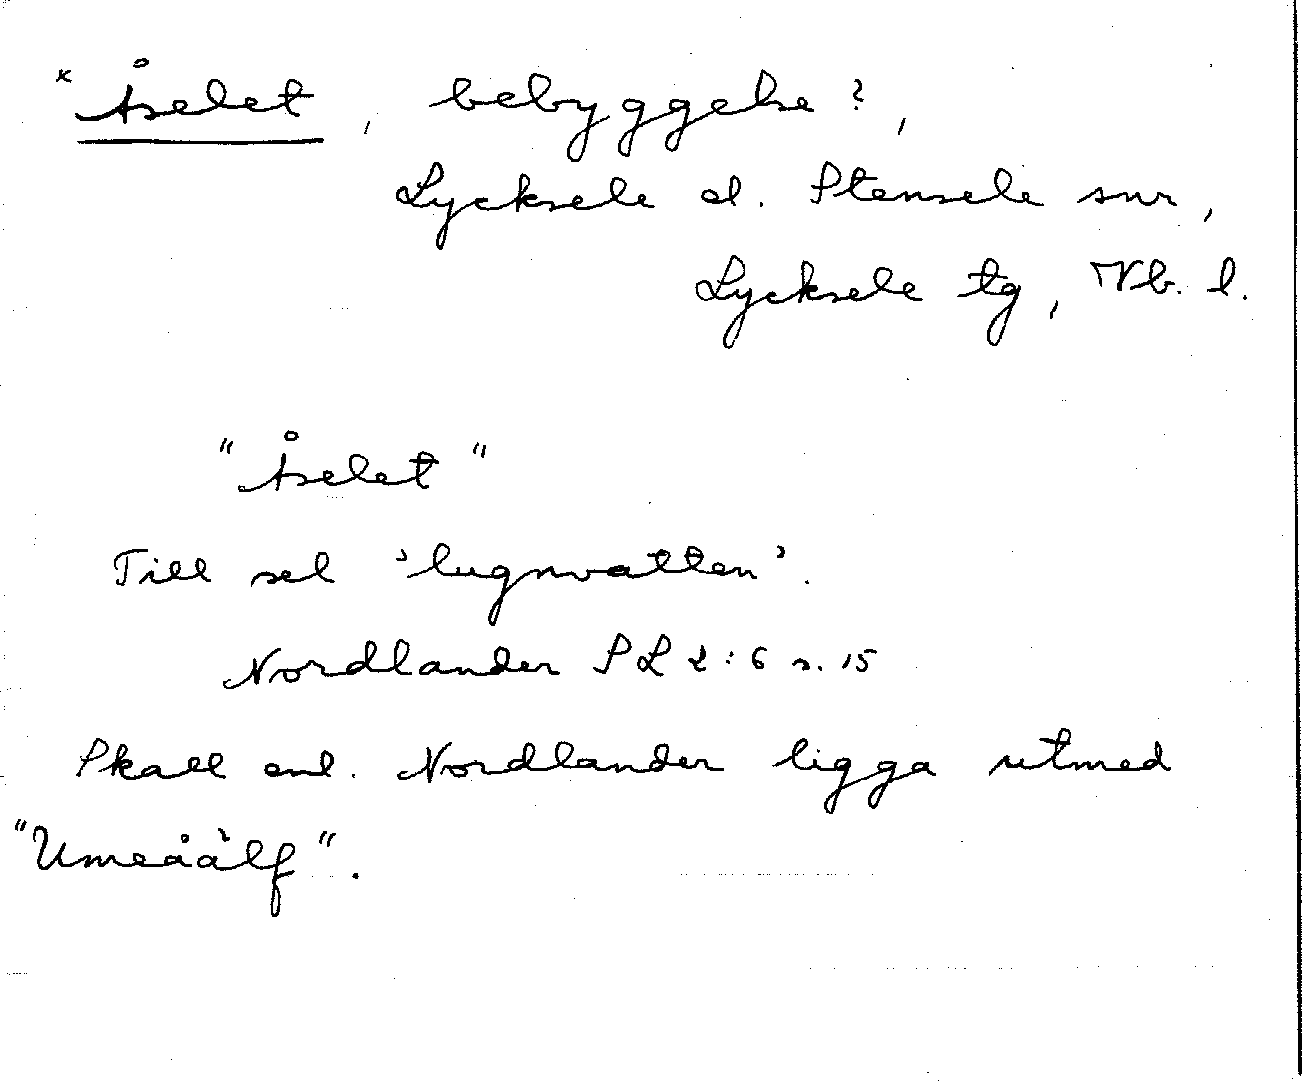 × Åselet, bebyggelse?,
Lycksele el. Stensele snr,
Lycksele tg, Vb. l.
"Åselet"
Till sel 'lugnvatten'.
Nordlander SL 2:6 s. 15
Skall enl. Nordlander ligga utmed
"Umeåälf".